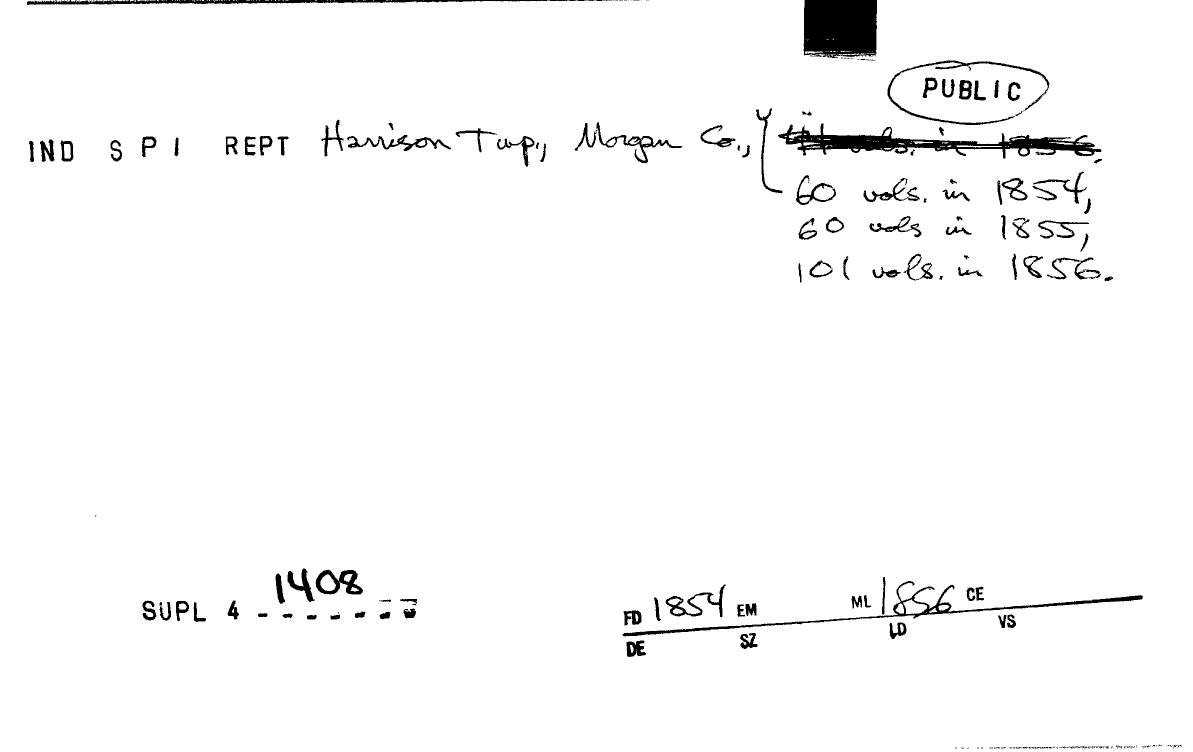 PUBLIC
IND SPI REPT Harrison Twp., Morgan Co., vols. in 1856.
60 vols. in 1854,
60 vols in 1855,
101 vols. in 1856.
1408
SUPL 4 - - - - - - -
FD 1854 EM ML 1856 CE
DE SZ LD VS